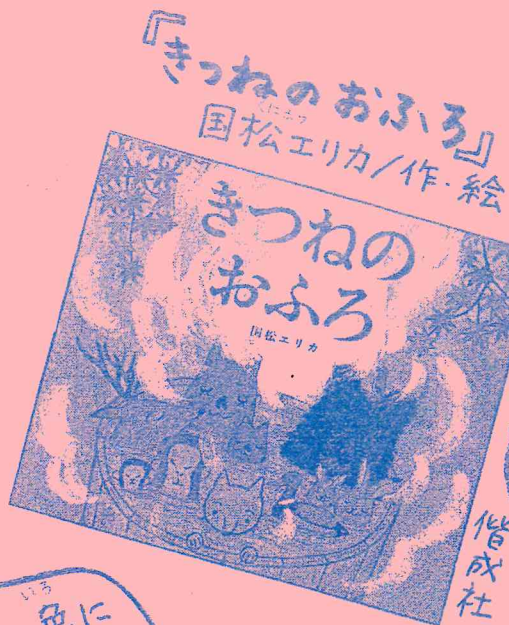 『きつねの おふろ』
くにまつ
国松エリカ/作・絵
きつねの
おふろ
国松エリカ
偕成社
いろ
色に